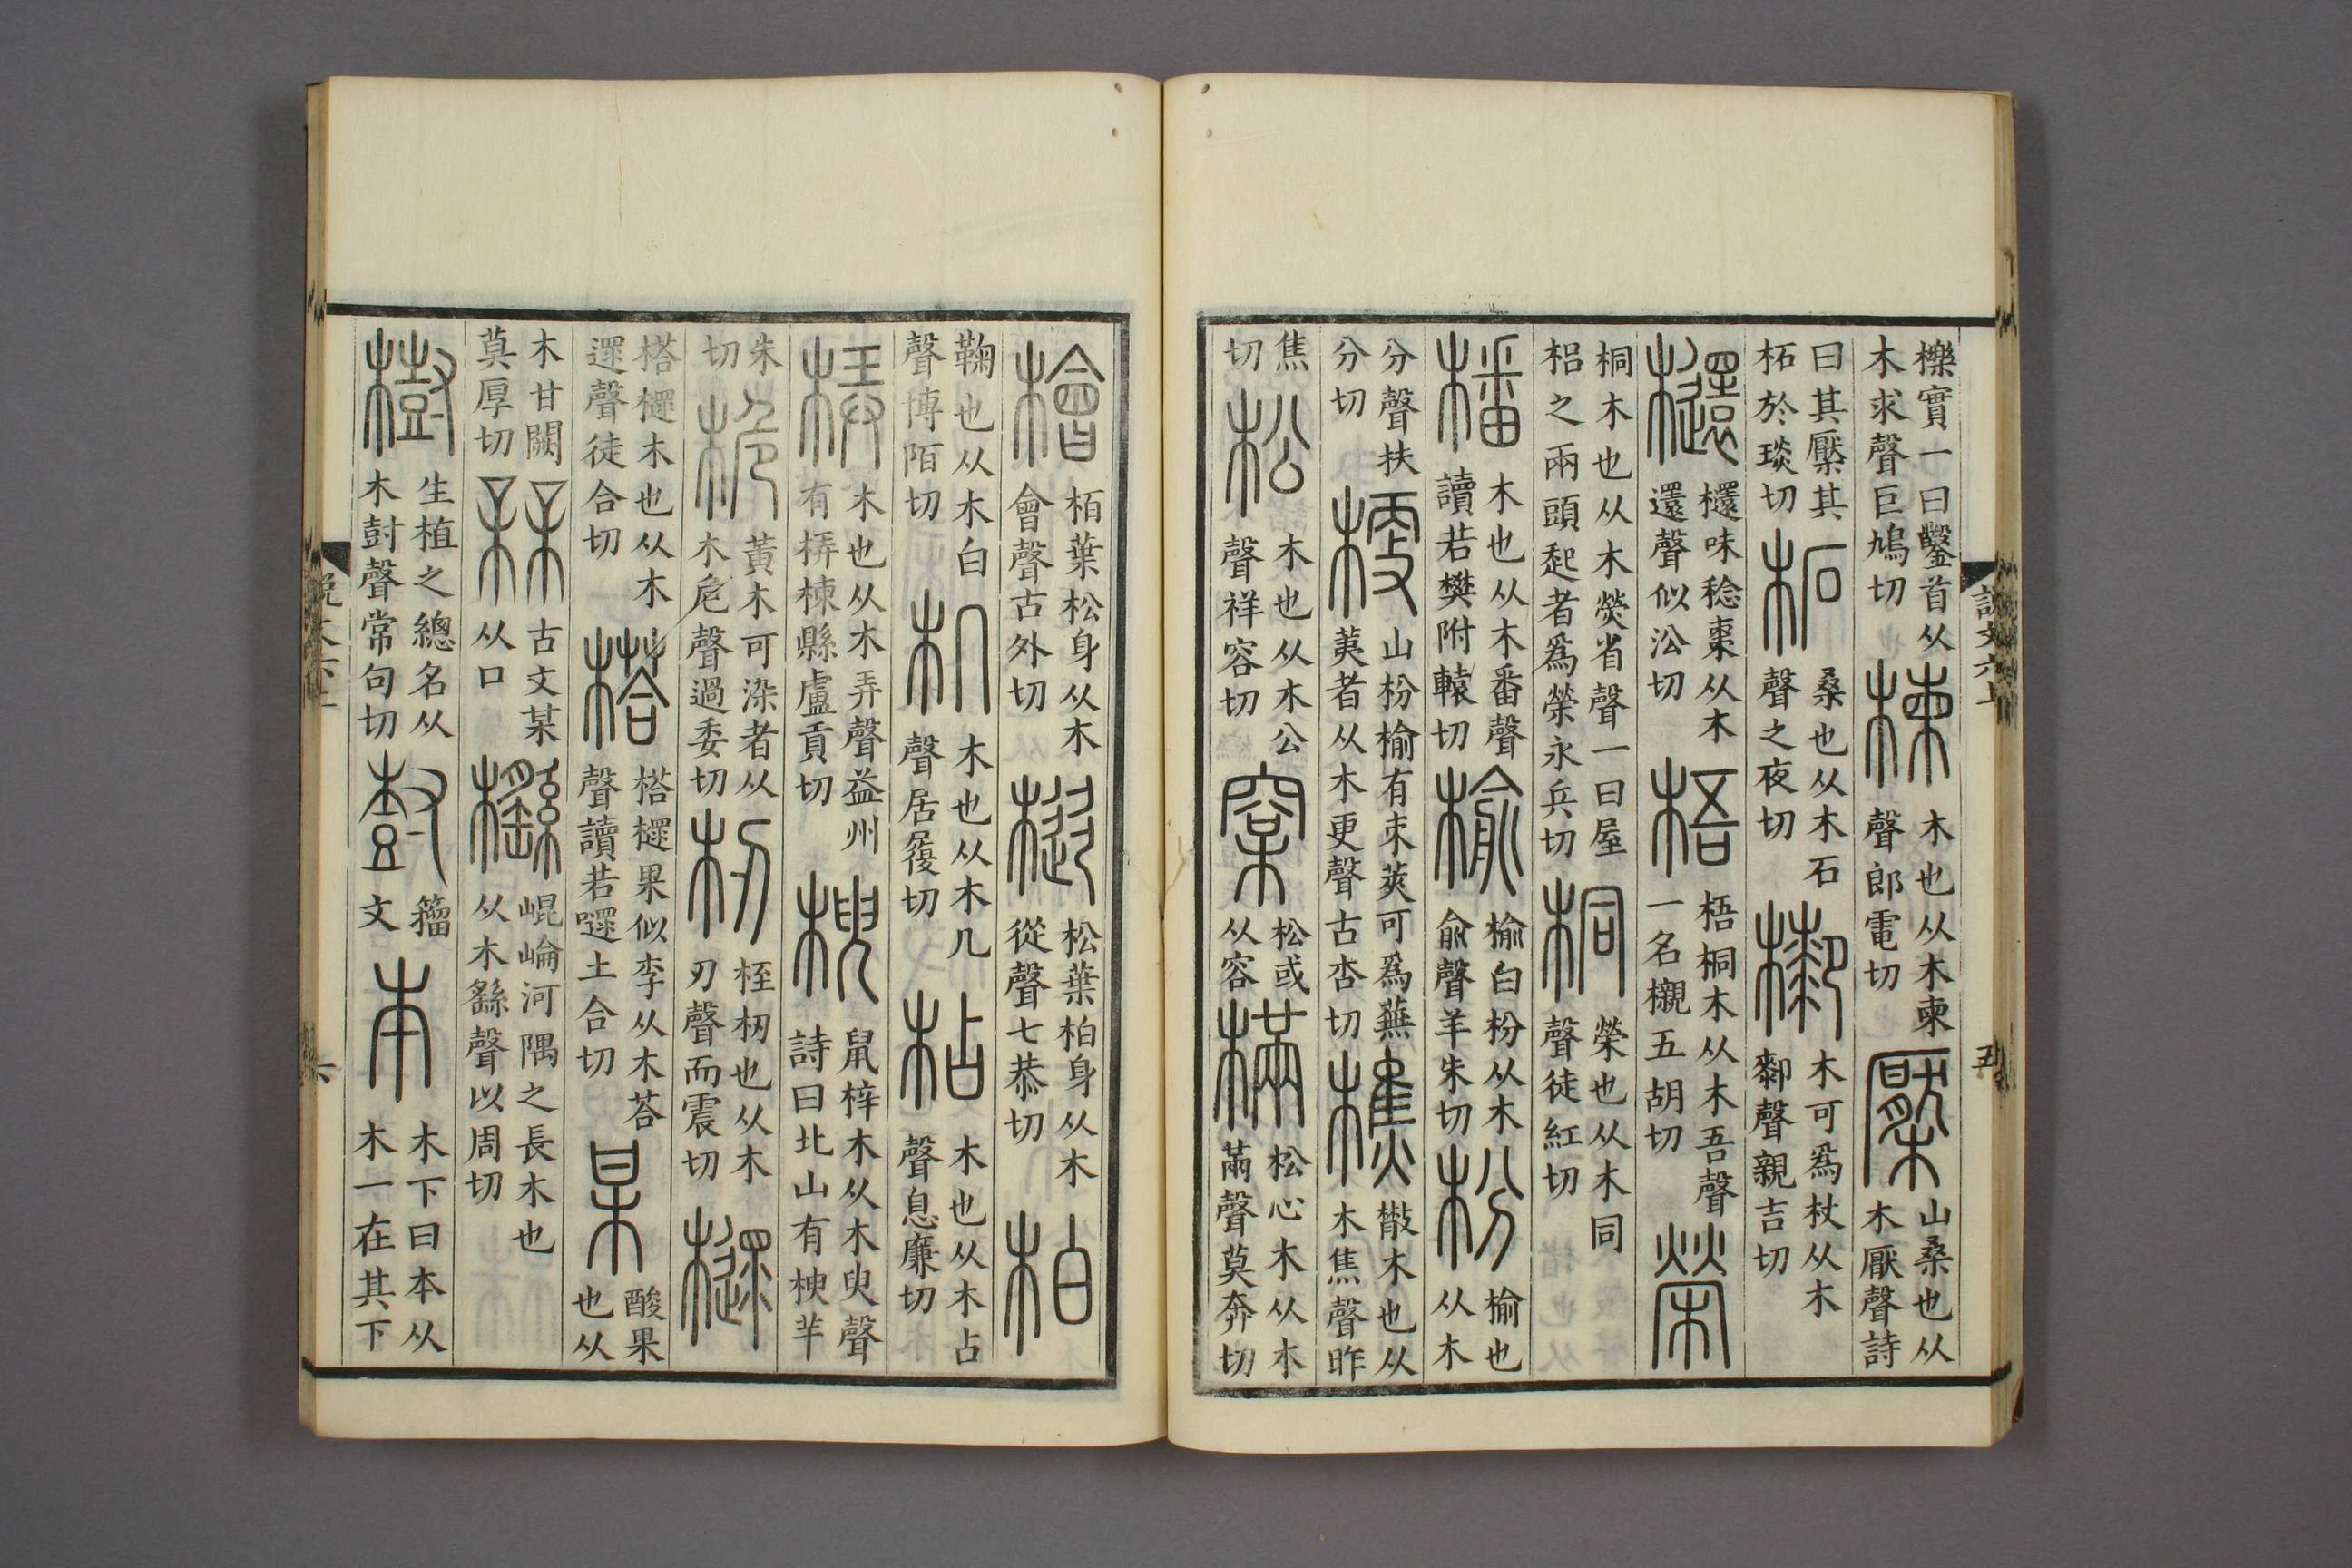 櫟實一曰鑿首从木求聲巨鳩切楝木也从木柬聲郎電切檿山桑也从木厭聲詩
曰其檿其柘於琰切柘桑也从木石聲之夜切木可爲杖从木厀聲親吉切
𣟴𣟴味稔棗从木還聲似㳂切梧梧桐木从木吾聲一名櫬五胡切榮
桐木也从木熒省聲一曰屋梠之兩頭起者爲榮永兵切桐榮也从木同聲徒紅切
橎木也从木番聲讀若樊附轅切榆榆白枌从木俞聲羊朱切枌榆也从木
分聲扶分切梗山枌榆有朿莢可爲蕪荑者从木更聲古杏切樵㪚木也从木焦聲昨
焦切松木也从木公聲祥容切㮤松或从容樠松心木从木㒼聲莫奔切
檜栢葉松身从木會聲古外切樅松葉柏身从木從聲七恭切柏
鞠也从木白聲博陌切机木也从木几聲居履切枮木也从木占聲息廉切
梇木也从木弄聲益州有梇棟縣盧貢切楰鼠梓木从木臾聲詩曰北山有楰羊
朱切桅黃木可染者从木危聲過委切杒桎杒也从木刃聲而震切𣝋
榙𣝋木也从木遝聲徒合切榙榙𣝋果似李从木荅聲讀若嚃土合切某酸果也从
木甘闕莫厚切古文某从口櫾崐崘河隅之長木也从木䌛聲以周切
樹生植之總名从木尌聲常句切籀文本木下曰本从木一在其下
說文六上
五
說文六上
六